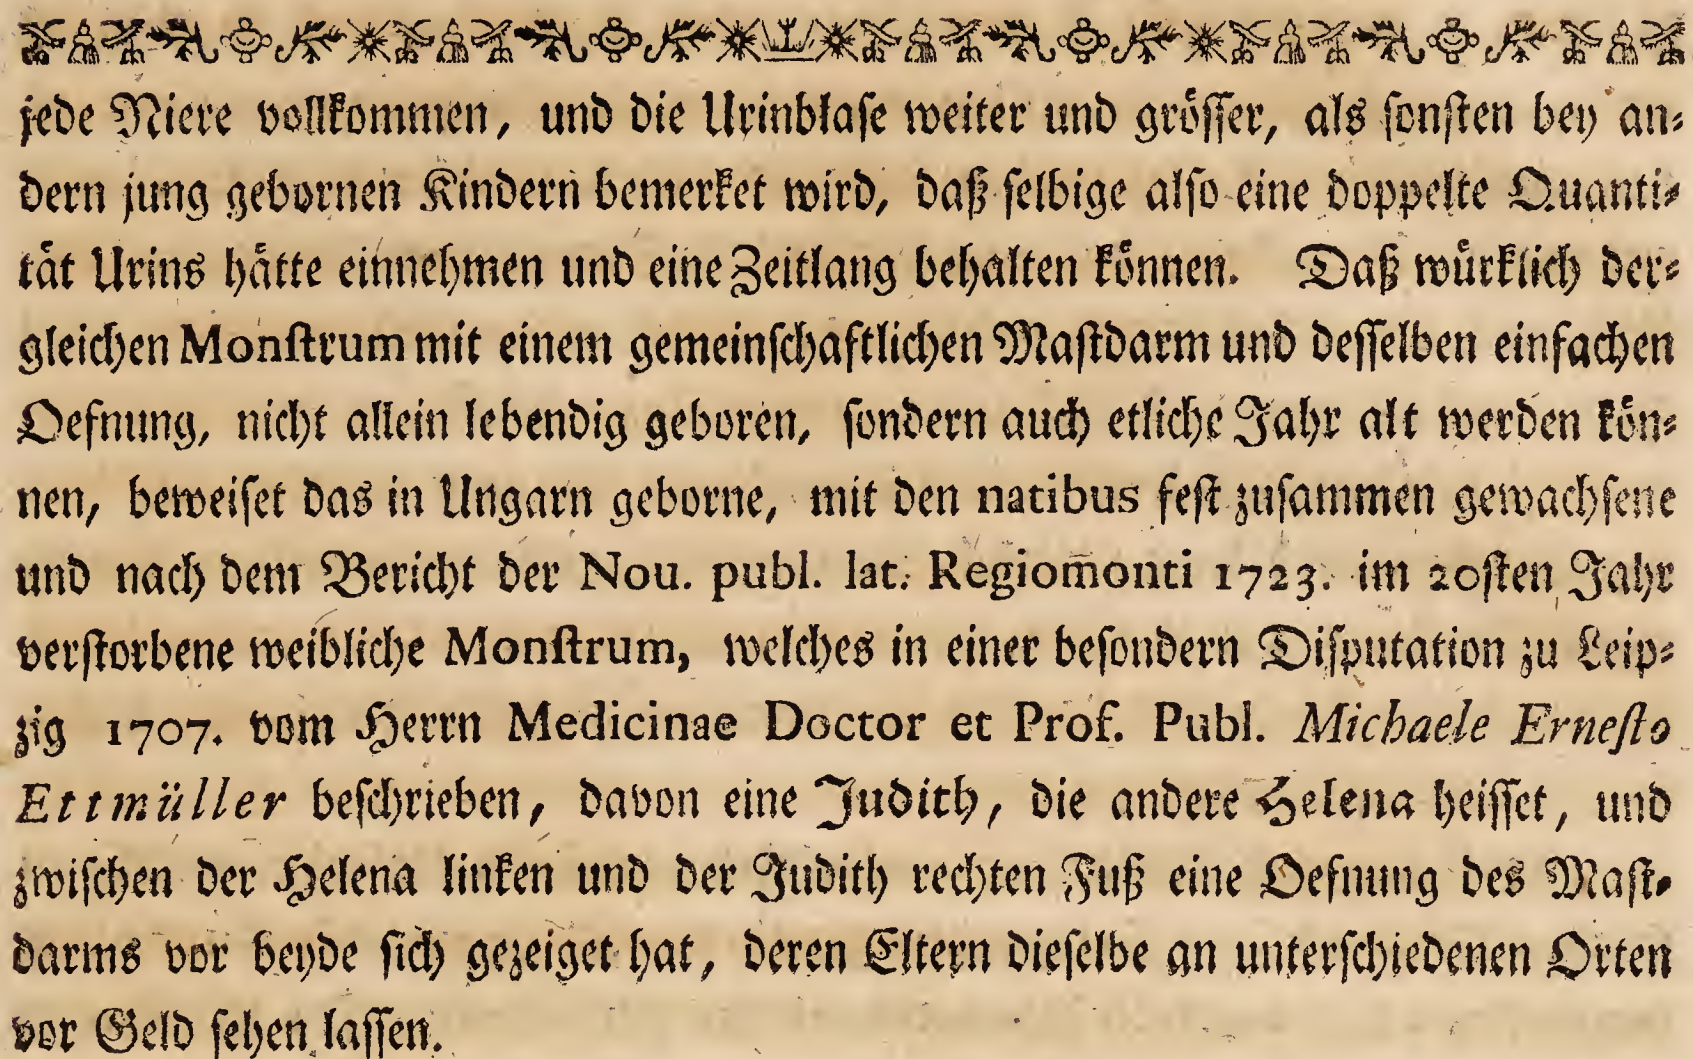 jede Niere vollkommen, und die Urinblase weiter und grösser, als sonsten bey an-
dern jung gebornen Kindern bemerket wird, daß selbige also eine doppelte Quanti-
tät Urins hätte einnehmen und eine Zeitlang behalten können. Daß würklich der-
gleichen Monstrum mit einem gemeinschaftlichen Mastdarm und desselben einfachen
Oefnung, nicht allein lebendig geboren, sondern auch etliche Jahr alt werden kön-
nen, beweiset das in Ungarn geborne, mit den natibus fest zusammen gewachsene
und nach dem Bericht der Nou. publ. lat. Regiom̄onti 1723. im 20sten Jahr
verstorbene weibliche Monstrum, welches in einer besondern Disputation zu Leip-
zig 1707. vom Herrn Medicinae Doctor et Prof. Publ. Michaele Ernesto
Ettmüller beschrieben, davon eine Judith, die andere Helena heisset, und
zwischen der Helena linken und der Judith rechten Fuß eine Oefnung des Mast-
darms vor beyde sich gezeiget hat, deren Eltern dieselbe an unterschiedenen Orten
vor Geld sehen lassen.